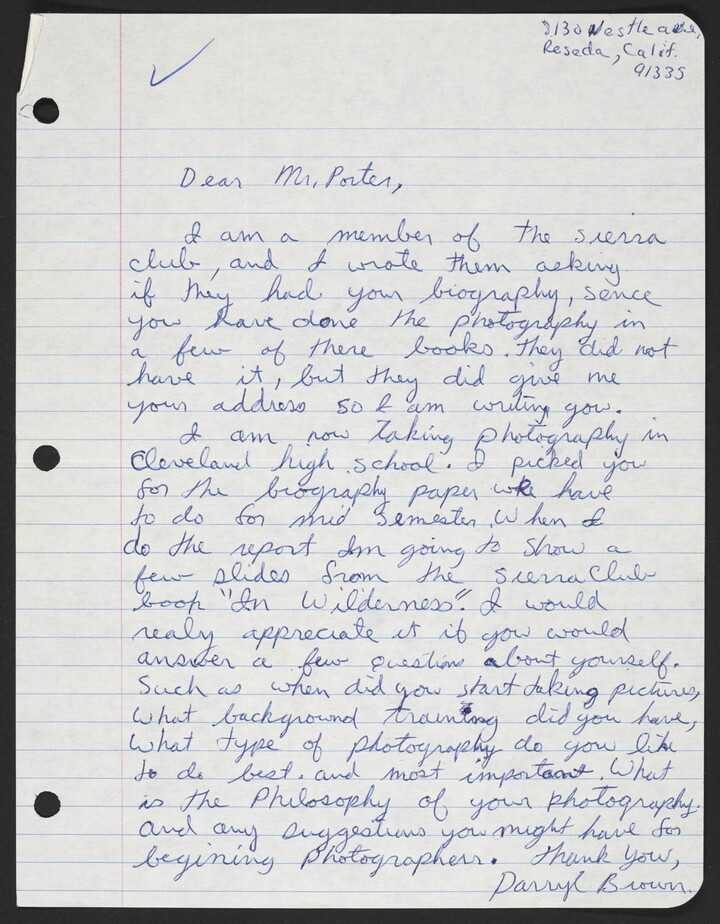 8130 Nestle ave,
Reseda, Calif.
91335
Dear Mr. Porter,
I am a member of the sierra
club, and I wrote them asking
if they had your biography, sence
you have done the photography in
a few of there books. they did not
have it, but they did give me
your address so I am writing you.
I am now taking photography in
Cleveland high school. I picked you
for the biography paper we have
to do for mid Semester. When I
do the report Im going to show a
few slides from the sierra Club
boop "In Wilderness". I would
realy appreciate it if you would
answer a few questions about yourself.
Such as when did you start taking pictures,
what background training did you have,
what type of photography do you like
to do best. and most important. What
is the Philosophy of your photography.
and any suggestions you might have for
begining photographers. Thank You,
Darryl Brown.